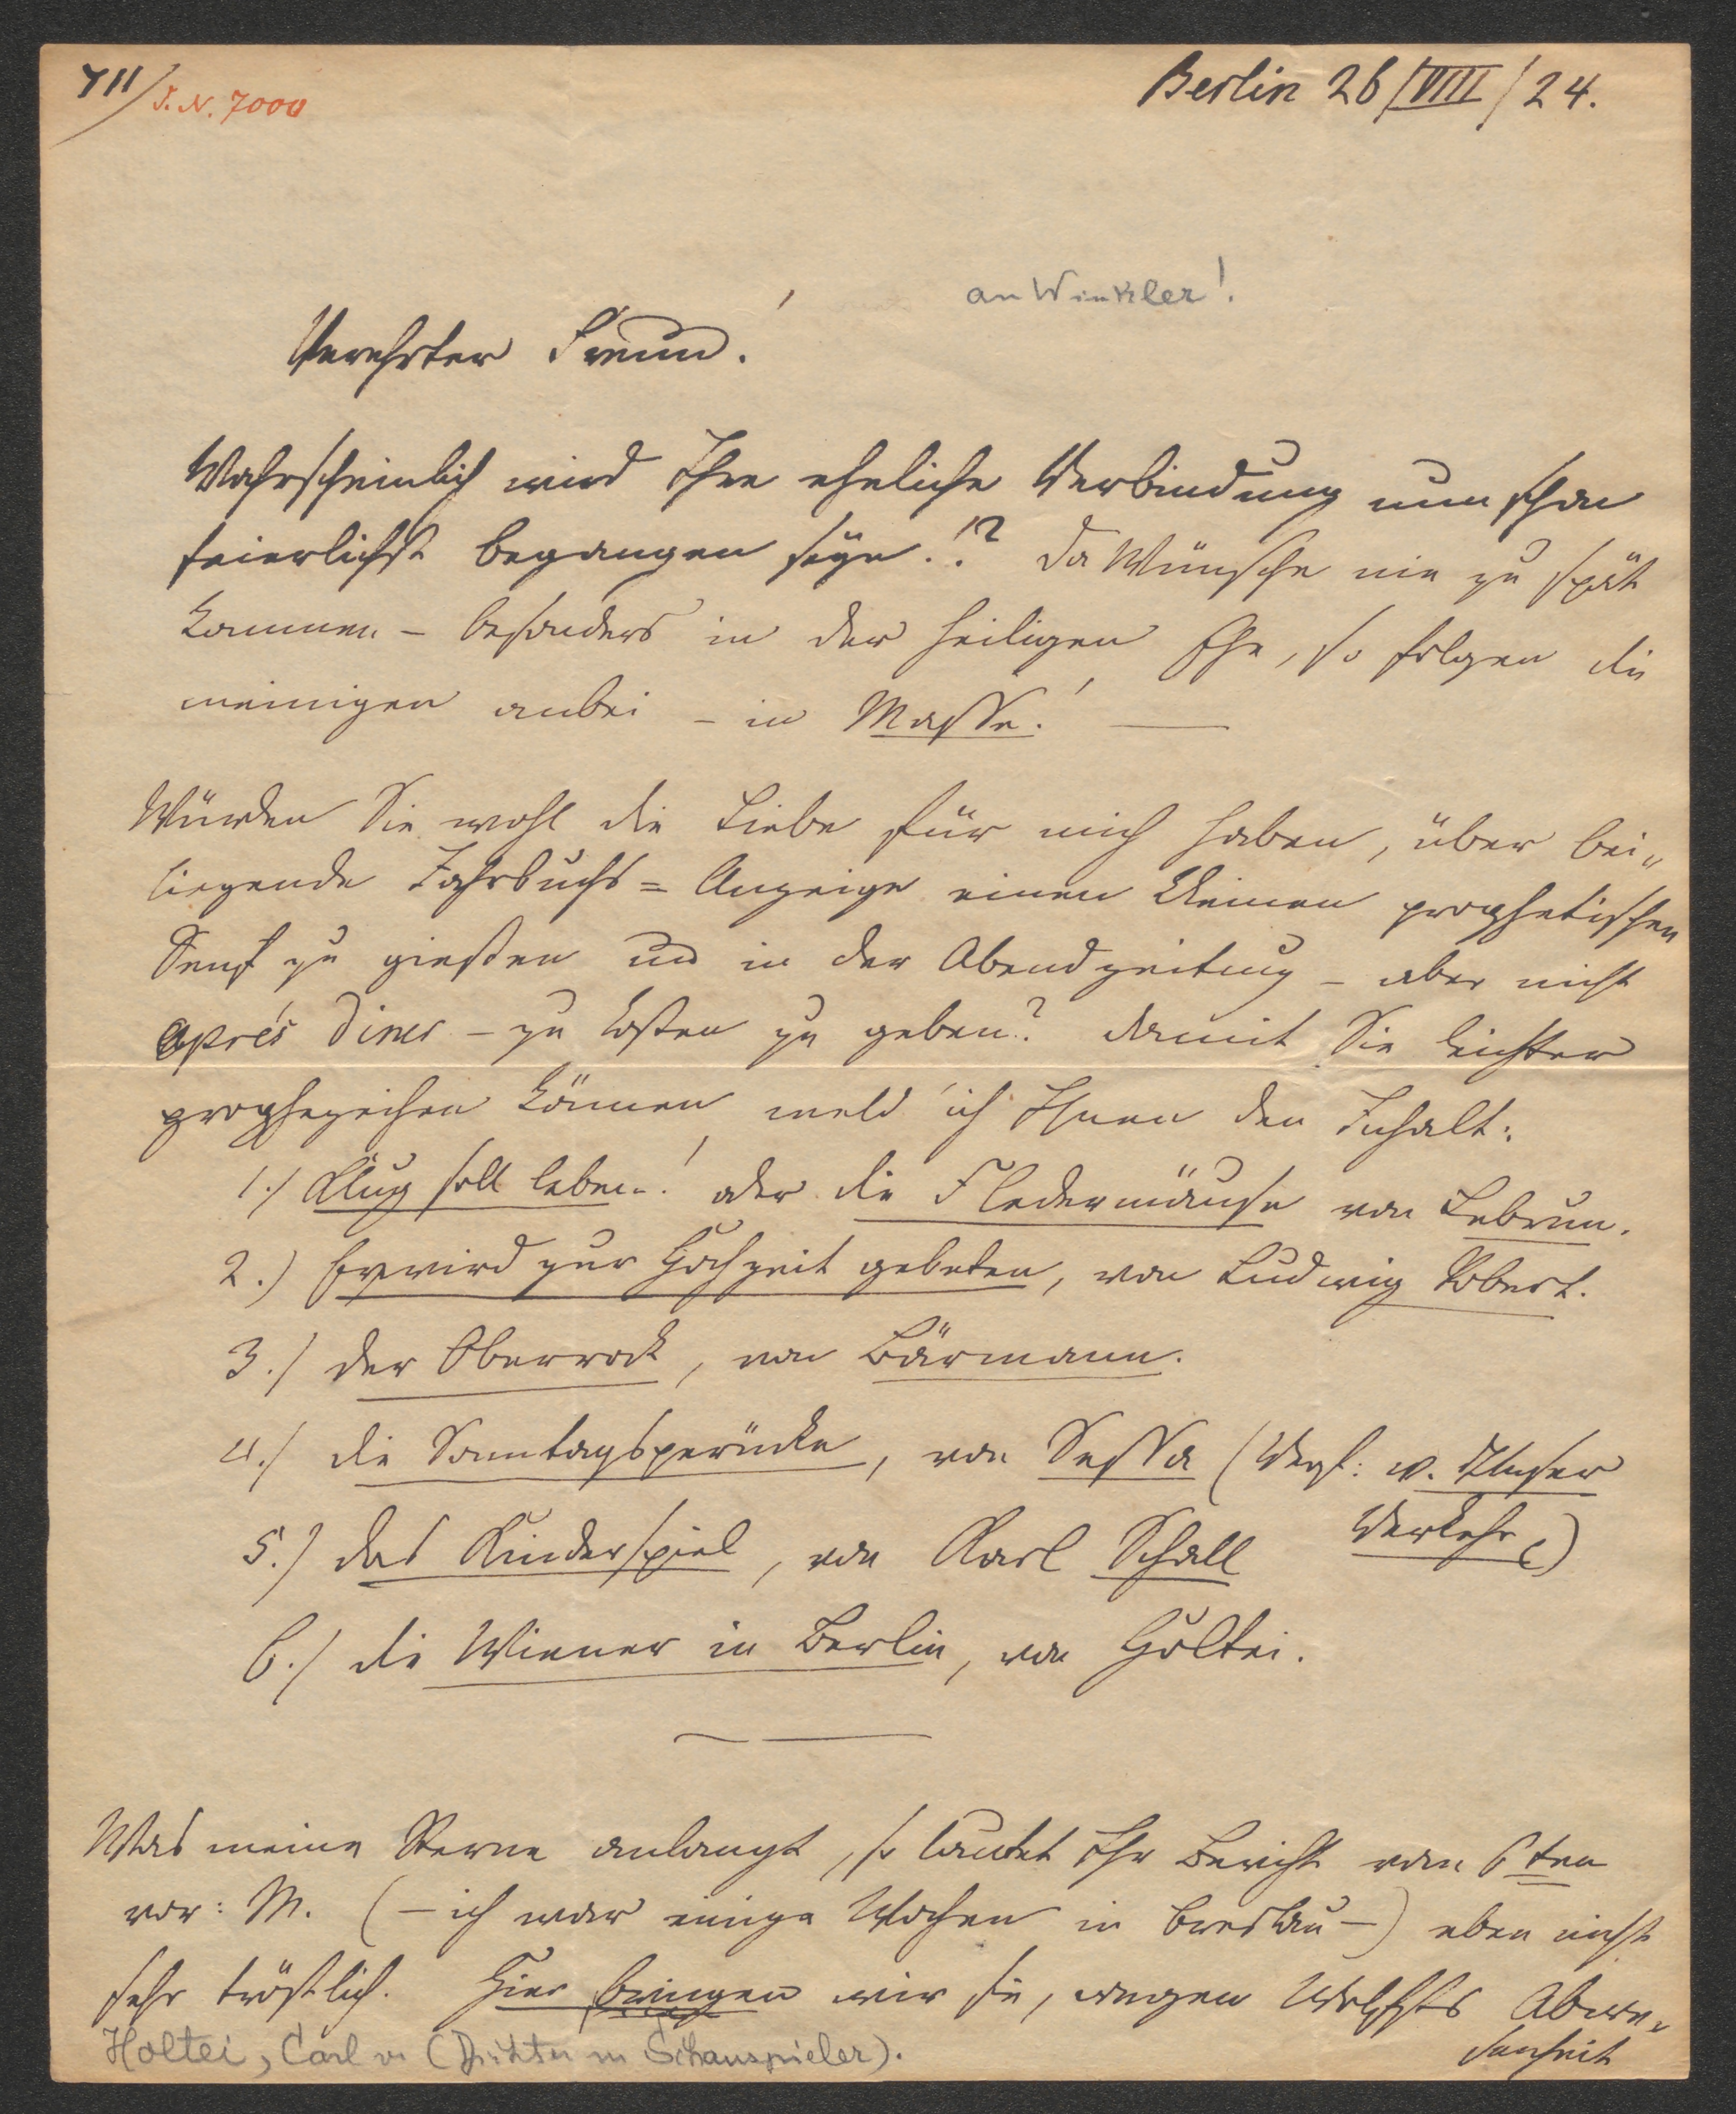 Berlin 26/VIII/24.
I.N. 7000
an Winkler!
Verehrter Freund!
Wahrscheinlich wird Ihre eheliche Verbindung nun schon
feierlichst begangen seyn!? Da Wünsche nie zu spät
kommen – besonders in der heiligen Ehe, so folgen die
meinigen anbei – in Masse! —
Würden Sie wohl die Liebe für mich haben, über bei„
liegende Jahrbuchs = Anzeige einen kleinen prophetischen
Senf zu gießen und in der Abendzeitung – aber nicht
après diner – zu kosten zu geben? damit Sie leichter
prophezeihen können meld' ich Ihnen den Inhalt:
1.) Klug soll leben! oder die Fledermäuse von Lebrun.
2.) Er wird zur Hochzeit gebeten, von Ludwig Robert.
3.) der Oberrock, von Bärmann.
4.) die Sonntagsperücke, von Sessa (Verf: v. Unser
Verkehr)
5.) das Kinderspiel, von Karl Schall
6.) die Wiener in Berlin, von Holtei.
Was meine Sterne anlangt, so lautet Ihr Bericht vom 6ten
vor: M. (– ich war einige Wochen in Breslau –) eben nicht
sehr tröstlich. Hier bringen wir sie, wegen Wolffs Abwe„
senheit
Holtei, Carl v. (Dichter u Schauspieler).